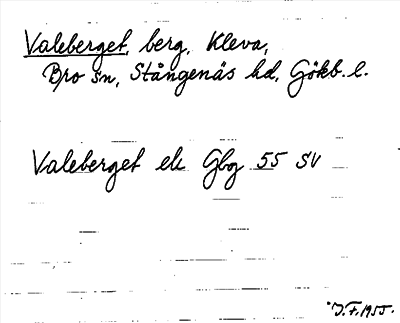 Valeberget, berg, Kleva,
Bro sn, Stångenäs hd, Gökb. l.
Valeberget ek Gbg 55 SV
J.F. 1955.